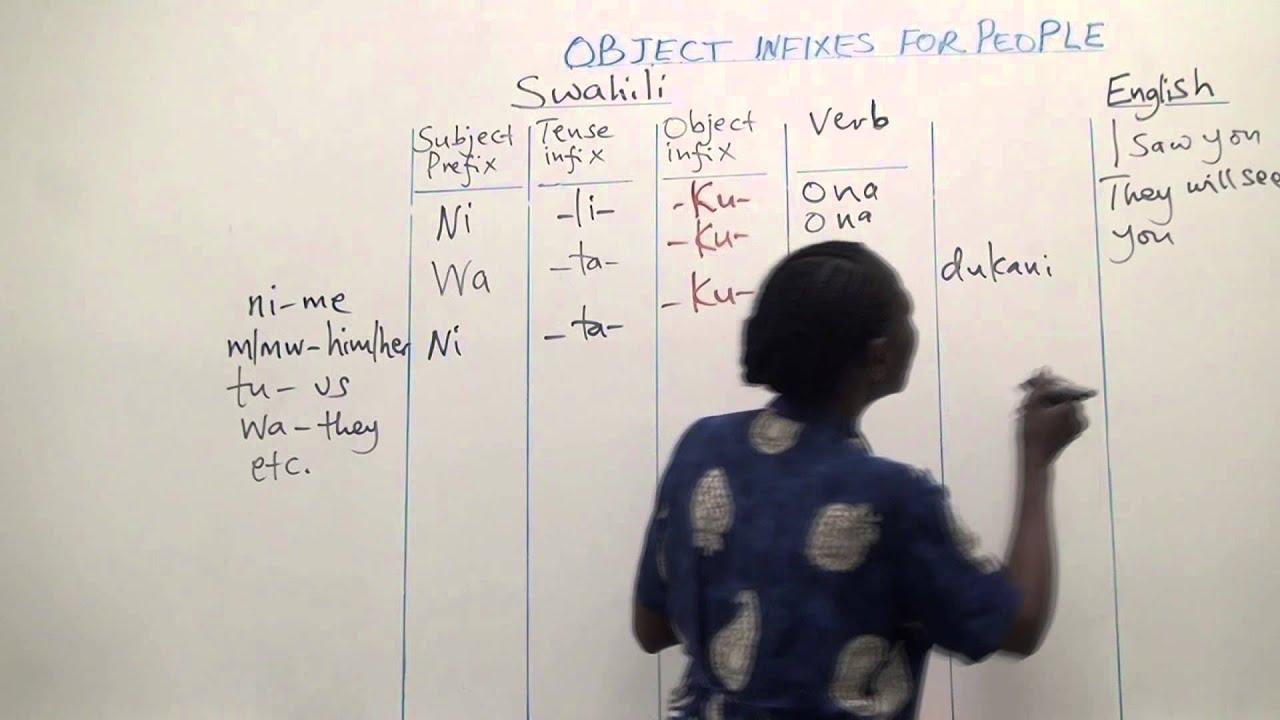 OBJECT INFIXES FOR PEOPLE
Swahili
English
Subject Prefix
Tense infix
Object infix
Verb
Ni -li- -Ku- Ona
I saw you
Wa -ta- -Ku- Ona
They will see you
Ni -ta- -Ku- dukani
ni-me
m/mw-him/her
tu-us
wa-they
etc.